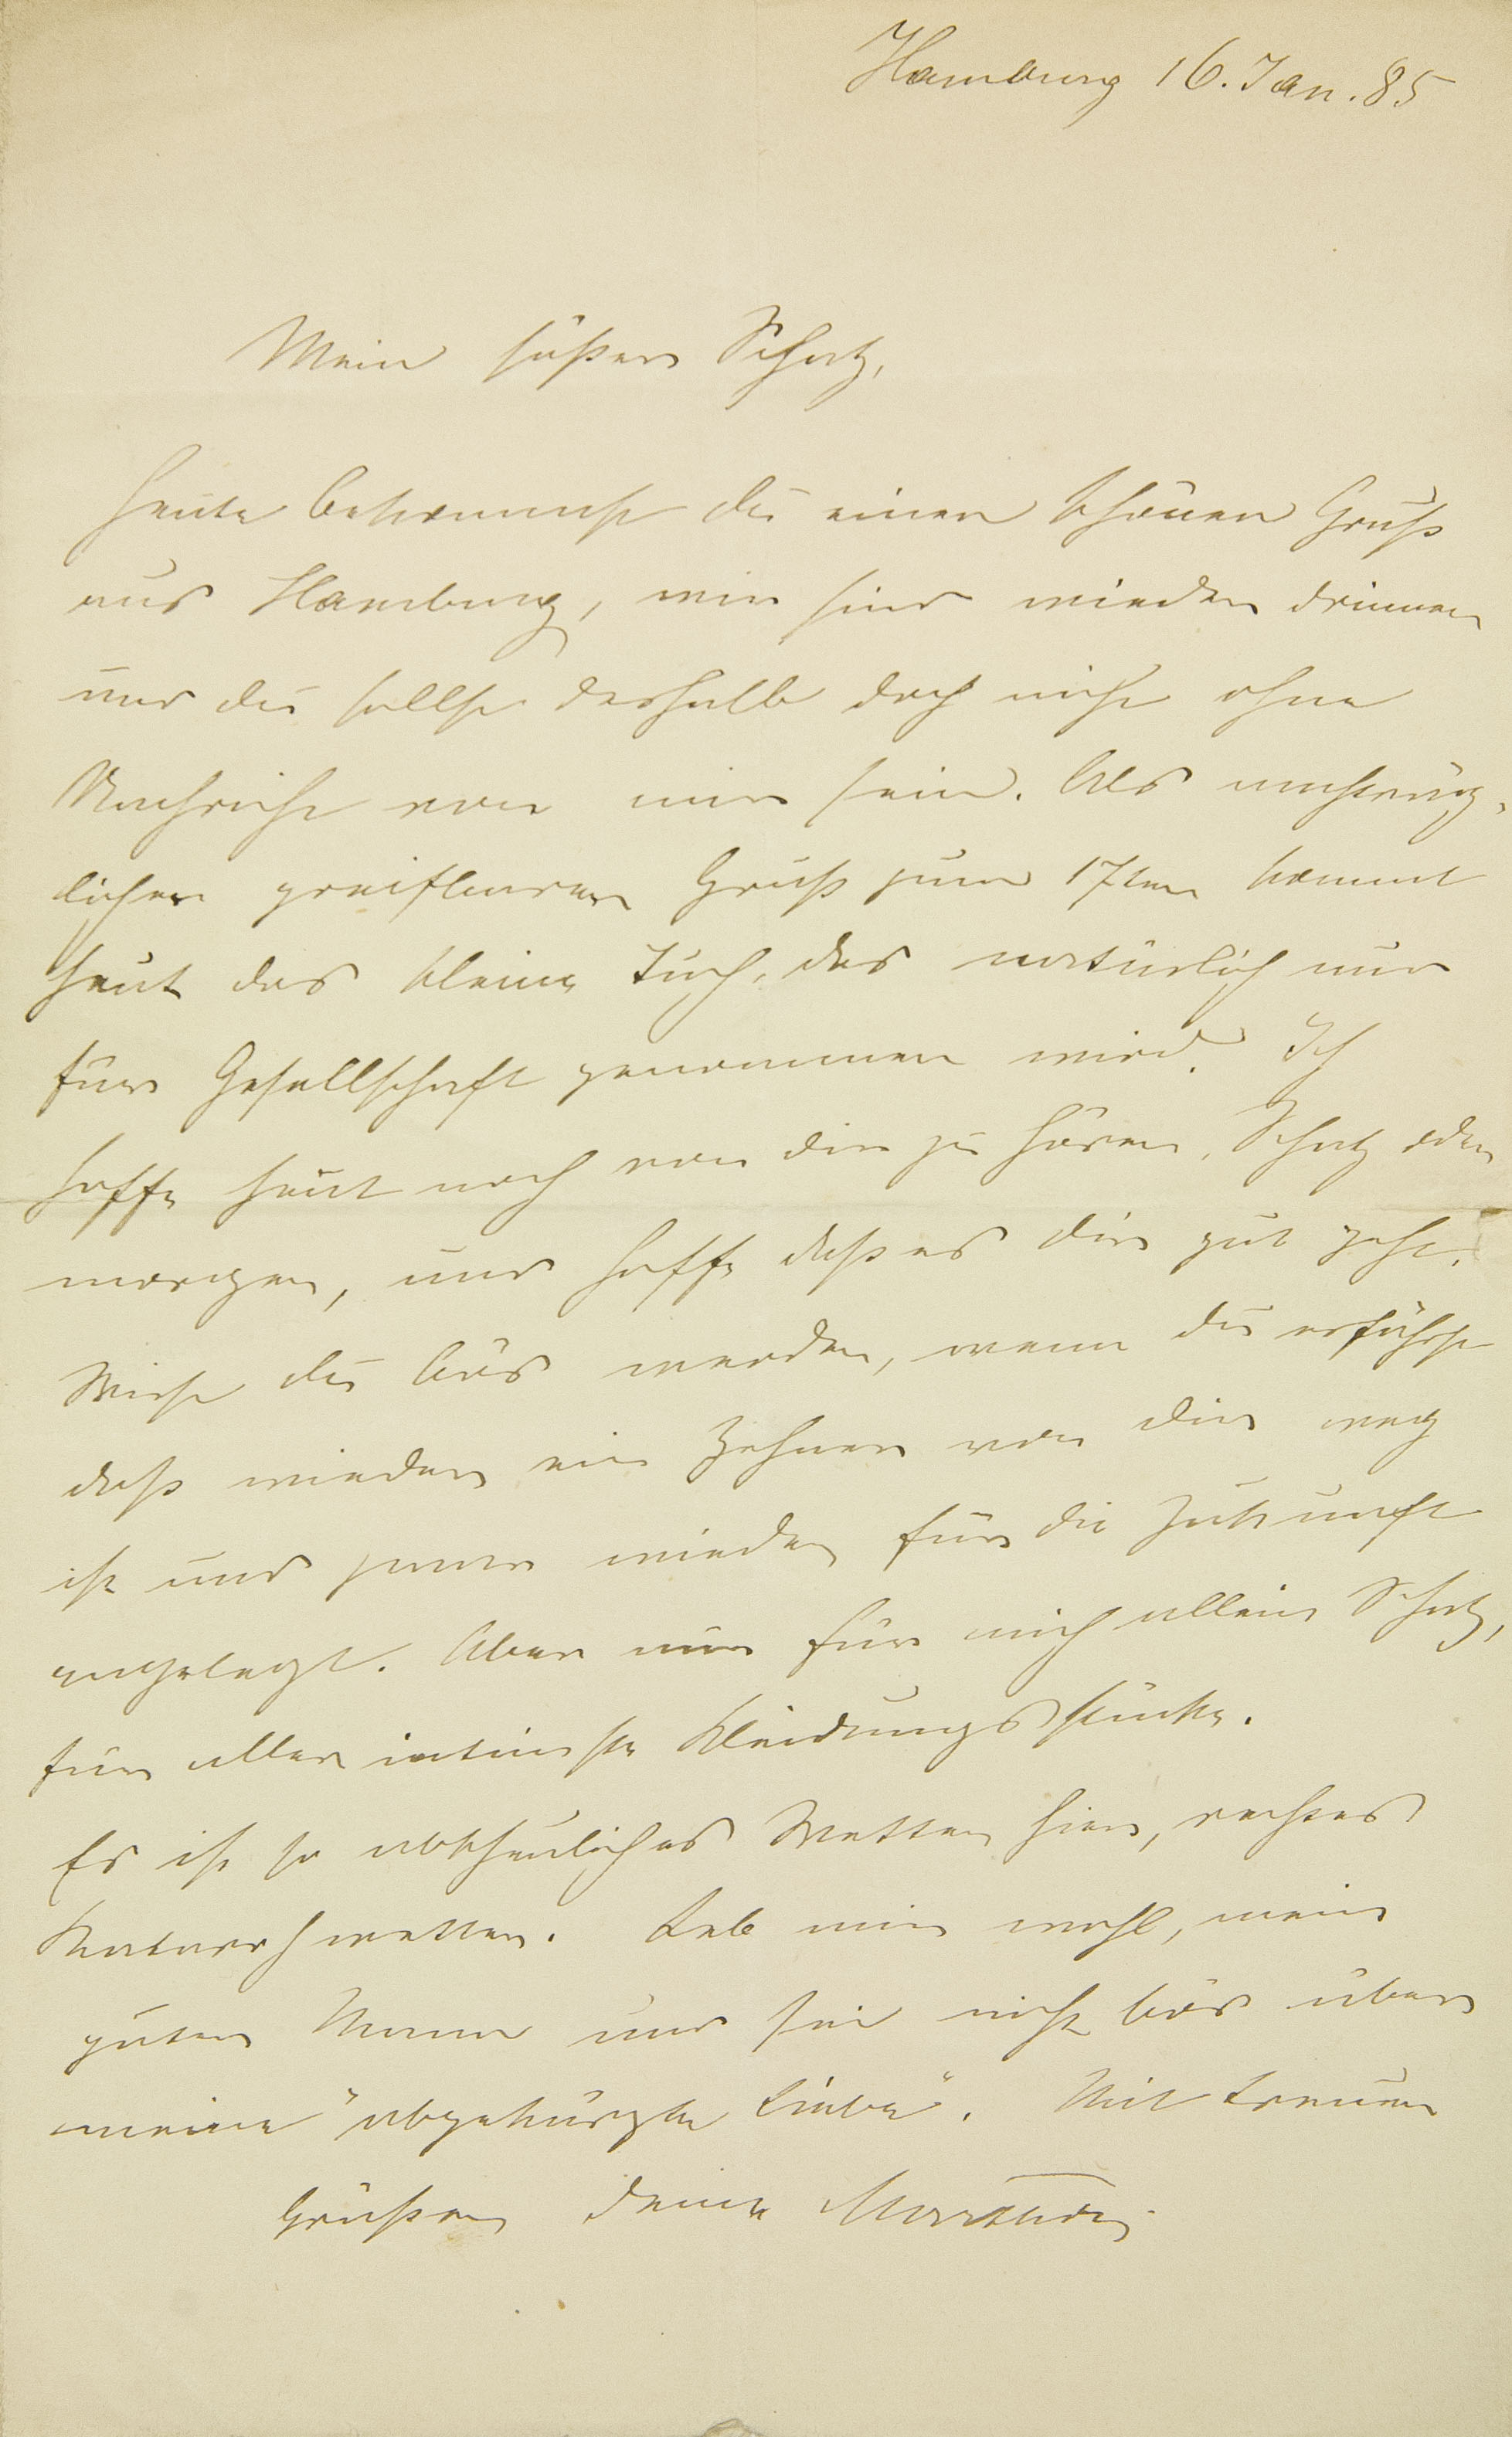 Hamburg 16. Jan. 85
Mein süßer Schatz,
heute bekommst du einen schönen Gruß
aus Hamburg, wir sind wieder drinnen
und du sollst deshalb doch nicht ohne
Nachricht von mir sein. Als nachträg-
licher greifbarer Gruß zum 17ten kommt
heut das kleine Tuch, das natürlich nur
für Gesellschaft genommen wird. Ich
hoffe heut noch von dir zu hören, Schatz oder
morgen, und hoffe daß es dir gut geht.
Wirst du bös werden, wenn du erfährst
daß wieder ein Zehner von dir weg
ist und zwar wieder für die Zukunft
angelegt. Aber nur für mich allein Schatz,
für aller intimste Kleidungsstücke.
Es ist so abscheuliches Wetter hier, rechtes
Katarrhwetter. Leb mir wohl, mein
guter Mann und sei nicht bös über
meine "abgekürzte Liebe". Mit treuen
Grüßen deine Marthchen